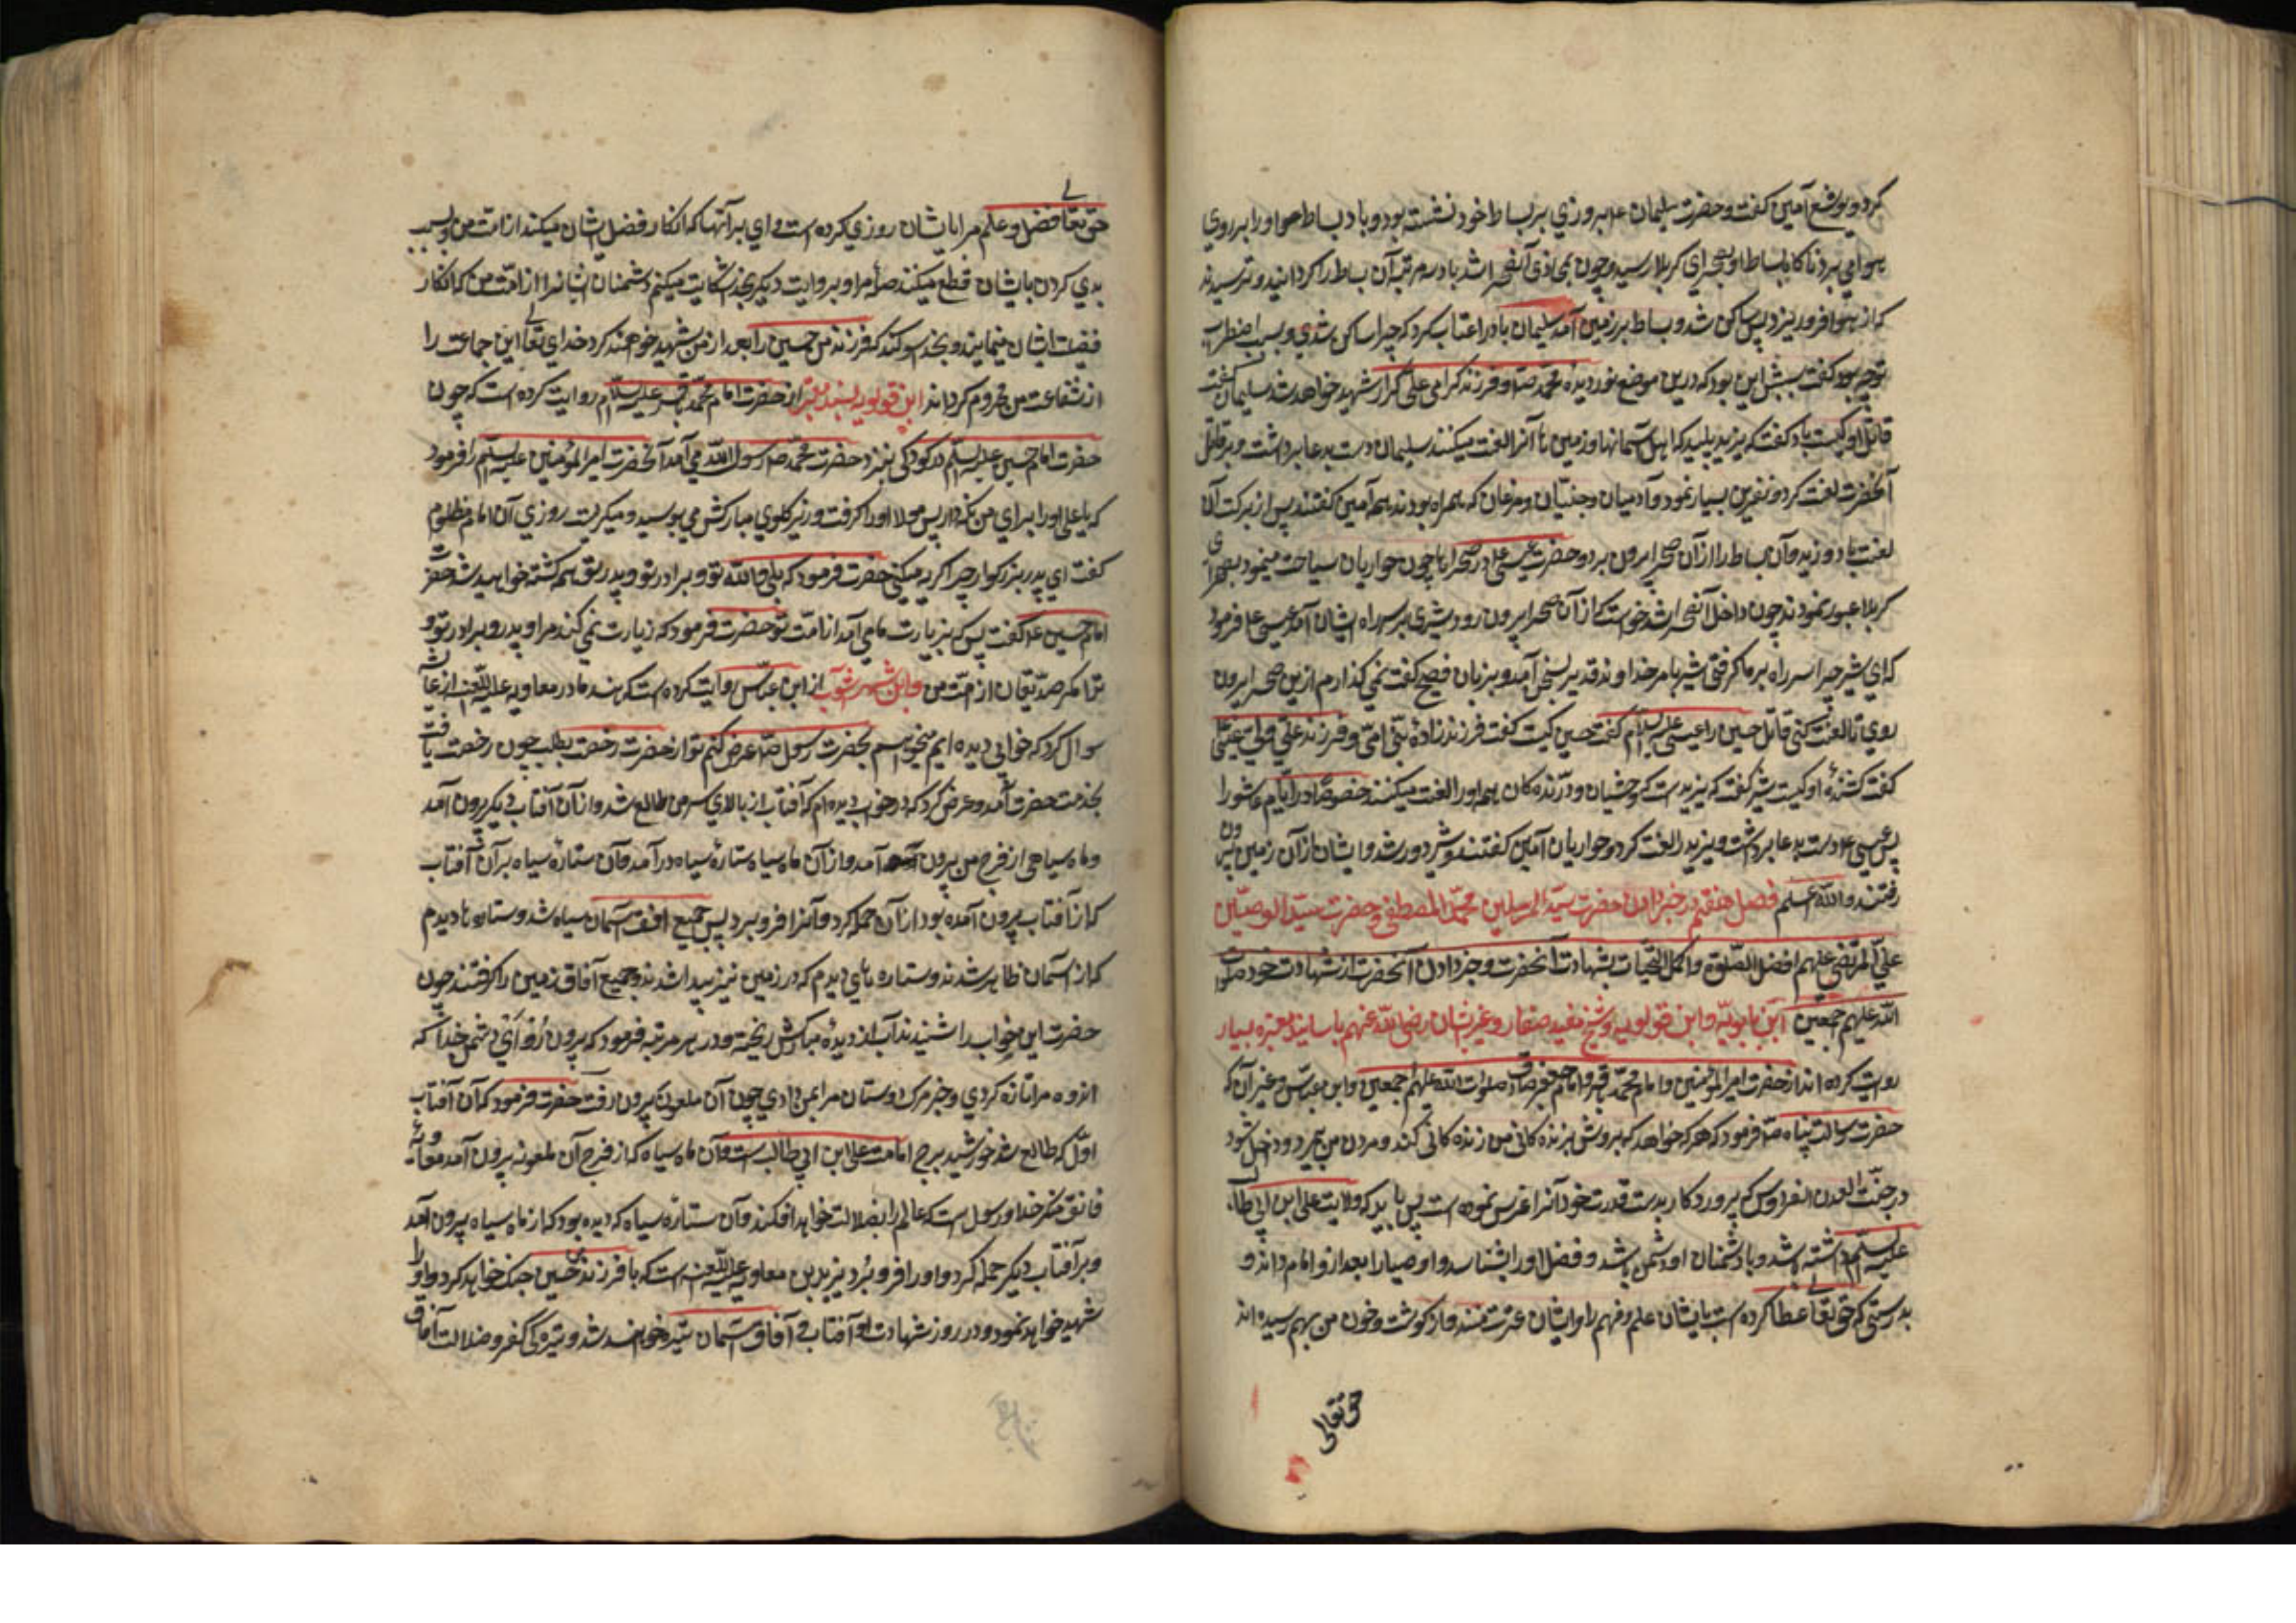 کرد و یوشع آمین گفت و حضرت سلیمان ع م روزی بر بساط خود نشسته بود و باد بساط او را بر روی
هوا می برد ناگاه بساط او بصحرای کربلا رسید و چون بمحاذی آنصحرا شد باد سه مرتبه آن بساط را گردانید و ترسیدند
که از هوا فرو ریزد پس ساکن شد و بساط بر زمین آمد سلیمان باد را عتاب کرد که چرا ساکن شدی و سبب اضطراب
تو چه بود گفت سببش این بود که درین موضع نور دیده محمد ص و فرزند گرامی علی کرار شهید خواهد شد سلیمان گفت
قاتل او کیست باد گفت که یزید پلید که اهل آسمانها و زمین ها آنرا لعنت میکنند سلیمان دست بدعا برداشت و بر قاتل
آنحضرت لعنت کرد و نفرین بسیار نمود و آدمیان و جنیان و مرغان که همراه بودند همه آمین گفتند پس از برکت آن
لعنت باد وزید و آن بساط را از آن صحرا بیرون برد و حضرت عیسی ع در صحراها چون حواریان سیاحت مینمود بصحرای
کربلا عبور نمودند چون داخل آنصحرا شد خواست که از آن صحرا بیرون رود شیری بر سر راه ایشان آمد عیسی ع فرمود
که ای شیر چرا سر راه بر ما گرفتی شیر بامر خداوند قدیر بسخن آمد و بزبان فصیح گفت نمی گذارم ازین صحرا بیرون
روی تا لعنت کنی قاتل حسین را عیسی علیه السلام گفت حسین کیست گفت فرزند زاده نبی امی و فرزند علی ولی
گفت کشنده او کیست شیر گفت که یزید است که وحشیان و درنده کان همه او را لعنت میکنند خصوصا در ایام عاشورا
پس عیسی ع دست بدعا برداشت و یزید را لعنت کرد و حواریان آمین گفتند و شیر دور شد و ایشان از آن زمین بیرون
رفتند والله اعلم فصل هفتم در خبر دادن حضرت سید المرسلین محمد المصطفی و حضرت سید الوصیین
علی المرتضی علیهم افضل الصلوة و اکمل التحیات بشهادت آنحضرت و خبر دادن آنحضرت از شهادت خود صلوات
الله علیهم اجمعین ابن بابویه و ابن قولویه و شیخ مفید و صفار و غیر ایشان رضی الله عنهم باسانید معتبره بسیار
روایت کرده اند از حضرت امیر المؤمنین و امام محمد باقر و امام جعفر صادق صلوات الله علیهم اجمعین و ابن عباس و غیر آن که
حضرت رسالت پناه ص فرمود که هر که خواهد که بروش زنده کانی من زنده کانی کند و مردن من بمیرد و داخل شود
در جنت العدن الفردوس که پروردگار بدست قدرت خود آنرا غرس نموده است پس باید که ولایت علی ابن ابی طالب
علیه السلم داشته باشد و با دشمنان او دشمن باشد و فضل او را بشناسد و اوصیا را بعد از و امام داند و
بدرستی که حق تعالی عطا کرده است بایشان علم و فهم را و ایشان عترت منند و از گوشت و خون من بهم رسیده اند
حق تعالی
حق تعالی فضل و علم مرا بایشان روزی کرده است وای بر آنها که انکار فضل ایشان میکنند از امت من و بسبب
بدی کردن بایشان قطع میکنند صله مرا و بروایت دیگر بخدا شکایت میکنم دشمنان ایشانرا از امت من که انکار
فضیلت ایشان مینمایند و بخدا سوگند که فرزند من حسین را بعد از من شهید خواهند کرد خدای تعالی این جماعت را
از شفاعت من محروم گرداند ابن قولویه بسند معتبر از حضرت امام محمد باقر علیه السلام روایت کرده است که چون
حضرت امام حسین علیه السلم در کودکی بنزد حضرت محمد ص رسول الله می آمد آنحضرت امیر المؤمنین علیه السلم را فرمود
که یا علی او را برای من نگه دار پس مولا او را گرفت و زیر گلوی مبارکش می بوسید و میگریست روزی آن امام مظلوم
گفت ای پدر بزرگوار چرا گریه میکنی حضرت فرمود که بلی والله تو و برادر تو و پدر تو همه کشته خواهید شد حضرت
امام حسین ع گفت پس که بزیارت ما می آید از امت تو حضرت فرمود که زیارت نمی کند مرا و پدر و برادر تو و
ترا مگر صدیقان از امت من و ابن شهر آشوب از ابن عباس روایت کرده است که هند مادر معاویه علیه اللعنه از عایشه
سوال کرد که خوابی دیده ایم میخواهم بحضرت رسول ص عرض کنم تو از حضرت رخصت بطلب چون رخصت یافت
بخدمت حضرت آمد و عرض کرد که در خواب دیده ام که آفتاب از بالای سر من طالع شد و از آن آفتاب دیگر بیرون آمد
و ماه سیاهی از فرج من بیرون آمد و از آن ماه سیاه ستاره سیاه در آمد و آن ستاره سیاه بر آن آفتاب
که از آفتاب بیرون آمده بود از آن حمله کرد و آنرا فرو برد پس جمیع افق آسمان سیاه شد و ستاره ها دیدم
که از آسمان ظاهر شدند و ستاره های دیدم که در زمین نیز پیدا شدند و جمیع آفاق زمین را گرفتند چون
حضرت این خواب را شنیدند آب از دیده مبارکش ریخته و در هر مرتبه فرمود که بیرون رو ای دشمن خدا که
اندوه مرا تازه کردی و خبر مرگ دوستان مرا بمن دادی چون آن ملعونه بیرون رفت حضرت فرمود که آن آفتاب
اول که طالع شد خورشید برج امامت علی ابن ابی طالب است و آن ماه سیاه که از فرج آن ملعونه بیرون آمد معاویه
فاسق منکر خدا و رسول است که عالم را بضلالت خواهد افکند و آن ستاره سیاه که دیده بود که از ماه سیاه بیرون آمد
و بر آفتاب دیگر حمله کرد و او را فرو برد یزید بن معاویه علیه اللعنه است که با فرزندم حسین جنگ خواهد کرد و او را
شهید خواهد نمود و در روز شهادت او آفتاب و آفاق آسمان تیره خواهند شد و تیره گی کفر و ضلالت آفاق